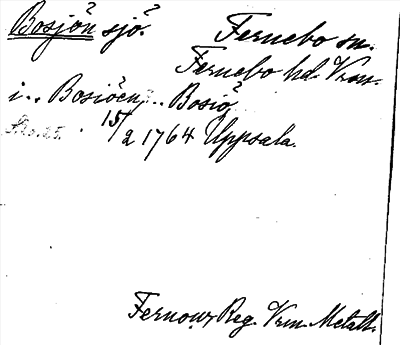 Bosjön sjö.
Fernebo sn.
Fernebo hd. Vrm.
i .. Bosiöen, .. Bosiö
15/2 1764 Uppsala.
Fernow, Reg. Vrm. Metall.